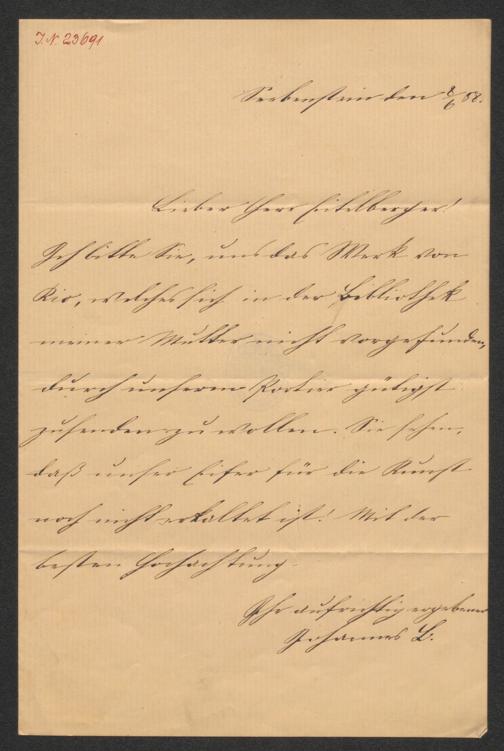 J.N. 23691
Seebenstein den 8/6 58.
Lieber Herr Eitelberger!
Ich bitte Sie, uns das Werk von
Rio, welches sich in der Bibliothek
meiner Mutter nicht vorgefunden,
durch unseren Portier gütigst
zusenden zu wollen. Sie sehen,
daß unser Eifer für die Kunst
noch nicht erkaltet ist! Mit der
besten Hochachtung
Ihr aufrichtig ergebener
Johannes L.